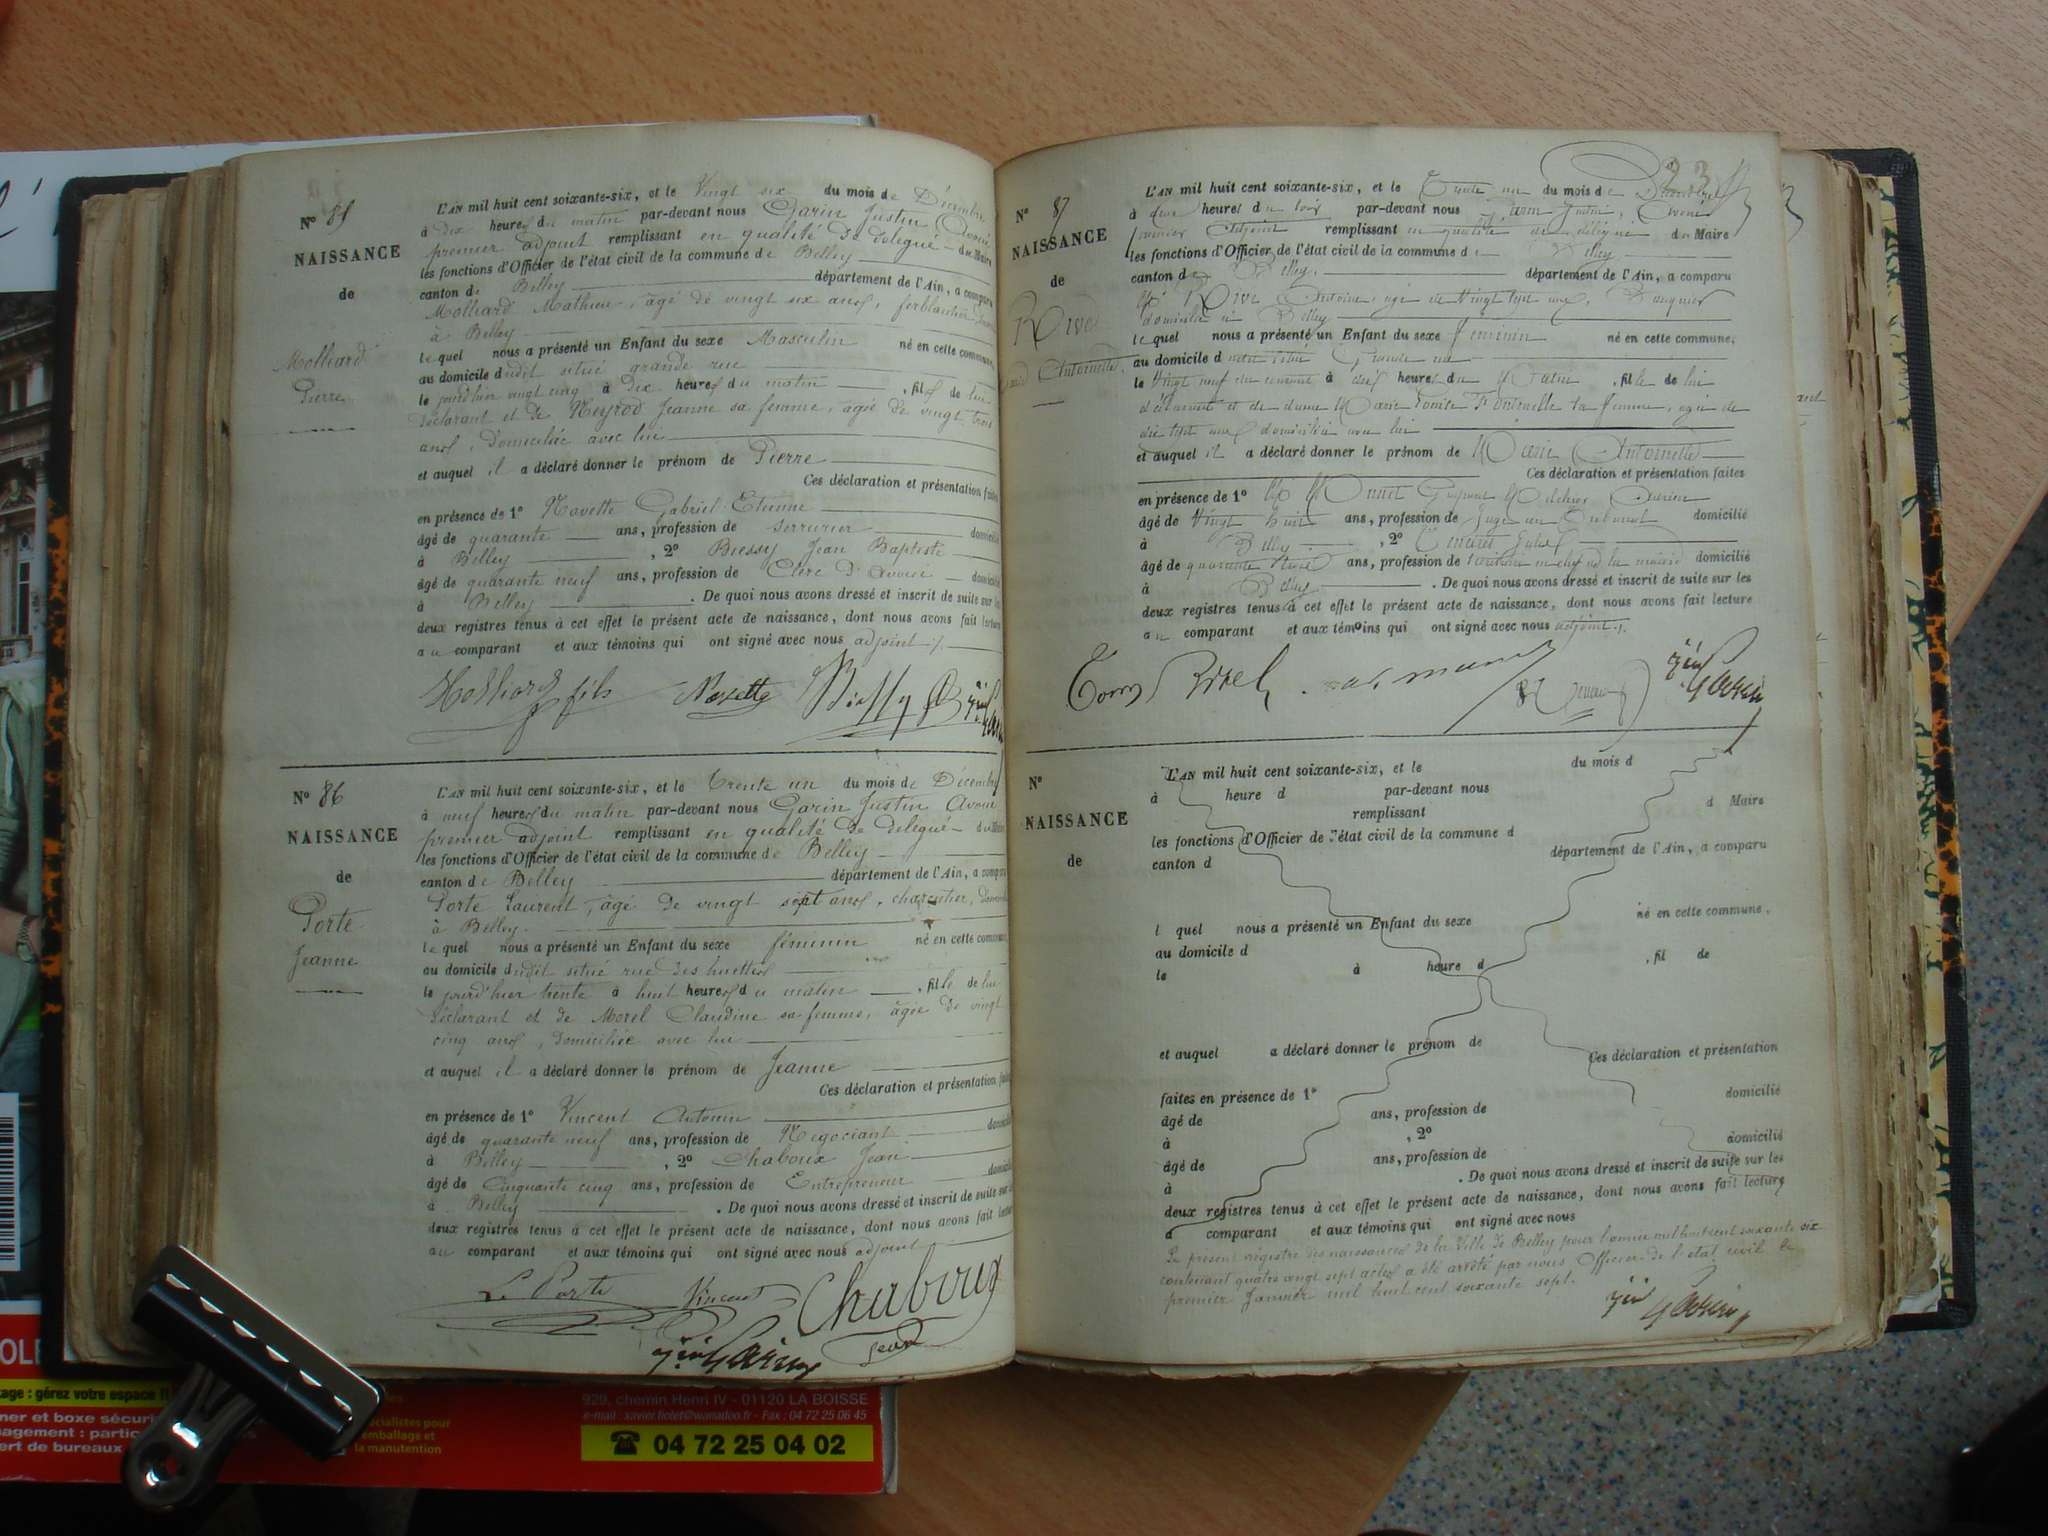 N° 85
NAISSANCE
de
Molliard
Pierre
L'AN mil huit cent soixante-six, et le Vingt six du mois de Décembre
à dix heures du matin par-devant nous Garin Justin, Avoué
premier adjoint remplissant en qualité de délégué du Maire
les fonctions d'Officier de l'état civil de la commune de Belley
canton de Belley département de l'Ain, a comparu
Molliard Mathieu, âgé de vingt six ans, ferblantier
à Belley
lequel nous a présenté un Enfant du sexe Masculin né en cette commune,
au domicile dudit situé grande rue
le jourd'hier vingt cinq à dix heures du matin, fils de lui
déclarant et de Neyrod Jeanne sa femme, âgée de vingt trois
ans, domiciliée avec lui
et auquel il a déclaré donner le prénom de Pierre
Ces déclaration et présentation faites
en présence de 1° Navette Gabriel Etienne
âgé de quarante ans, profession de serrurier domicilié
à Belley, 2° Bressy Jean Baptiste
âgé de quarante neuf ans, profession de Clerc d'avoué domicilié
à Belley. De quoi nous avons dressé et inscrit de suite sur les
deux registres tenus à cet effet le présent acte de naissance, dont nous avons fait lecture
au comparant et aux témoins qui ont signé avec nous adjoint
Molliard fils Navette Bressy
N° 86
NAISSANCE
de
Porte
Jeanne
L'AN mil huit cent soixante-six, et le Trente un du mois de Décembre
à neuf heures du matin par-devant nous Garin Justin Avoué
premier adjoint remplissant en qualité de délégué du Maire
les fonctions d'Officier de l'état civil de la commune de Belley
canton de Belley département de l'Ain, a comparu
Porte Laurent, âgé de vingt sept ans, charcutier, domicilié
à Belley.
lequel nous a présenté un Enfant du sexe féminin né en cette commune,
au domicile dudit situé rue des huettes
le jourd'hier trente à huit heures du matin, fille de lui
déclarant et de Morel Claudine sa femme, âgée de vingt
cinq ans, domiciliée avec lui
et auquel il a déclaré donner le prénom de Jeanne
Ces déclaration et présentation faites
en présence de 1° Vincent Antonin
âgé de quarante neuf ans, profession de Négociant domicilié
à Belley, 2° Chaboux Jean
âgé de Cinquante cinq ans, profession de Entrepreneur domicilié
à Belley. De quoi nous avons dressé et inscrit de suite sur les
deux registres tenus à cet effet le présent acte de naissance, dont nous avons fait lecture
au comparant et aux témoins qui ont signé avec nous adjoint
L. Porte Vincent Chaboux
jin Garin Jean
N° 87
NAISSANCE
de
Rive
Marie Antoinette
L'AN mil huit cent soixante-six, et le Trente un du mois de Décembre
à deux heures du soir par-devant nous Garin Justin, Avoué
premier Adjoint remplissant en qualité de délégué du Maire
les fonctions d'Officier de l'état civil de la commune de Belley
canton de Belley département de l'Ain, a comparu
Antoine, âgé de vingt sept ans, Banquier
domicilié à Belley
lequel nous a présenté un Enfant du sexe féminin né en cette commune,
au domicile Grande rue
le vingt neuf du courant à heures du Matin, fille de lui
déclarant et de dame Marie Louise sa femme, âgée de
dix sept ans domiciliée avec lui
et auquel il a déclaré donner le prénom de Marie Antoinette
Ces déclaration et présentation faites
en présence de 1° Melchior
âgé de vingt huit ans, profession de Juge au Tribunal domicilié
à Belley, 2°
âgé de quarante ans, profession de de la mairie domicilié
à Belley. De quoi nous avons dressé et inscrit de suite sur les
deux registres tenus à cet effet le présent acte de naissance, dont nous avons fait lecture
au comparant et aux témoins qui ont signé avec nous adjoint.
jin Garin
N°
NAISSANCE
de
L'AN mil huit cent soixante-six, et le du mois d
à heure d par-devant nous
remplissant d Maire
les fonctions d'Officier de l'état civil de la commune d
canton d département de l'Ain, a comparu
l quel nous a présenté un Enfant du sexe né en cette commune,
au domicile d
le à heure d , fil de
et auquel a déclaré donner le prénom de
Ces déclaration et présentation
faites en présence de 1° domicilié
âgé de ans, profession de
à , 2° domicilié
âgé de ans, profession de
à . De quoi nous avons dressé et inscrit de suite sur les
deux registres tenus à cet effet le présent acte de naissance, dont nous avons fait lecture
a comparant et aux témoins qui ont signé avec nous
Le présent registre des naissances de la Ville de Belley pour l'année mil huit cent soixante six
contenant quatre vingt sept actes a été arrêté par nous Officier de l'état civil le
premier Janvier mil huit cent soixante sept.
jin Garin
929, chemin Henri IV - 01120 LA BOISSE
e-mail : xavier.fiolet@wanadoo.fr - Fax : 04 72 25 06 45
☎ 04 72 25 04 02
kage : gérez votre espace !!
ner et boxe sécuri
nagement : partic
ert de bureaux
écialistes pour
emballage et
la manutention